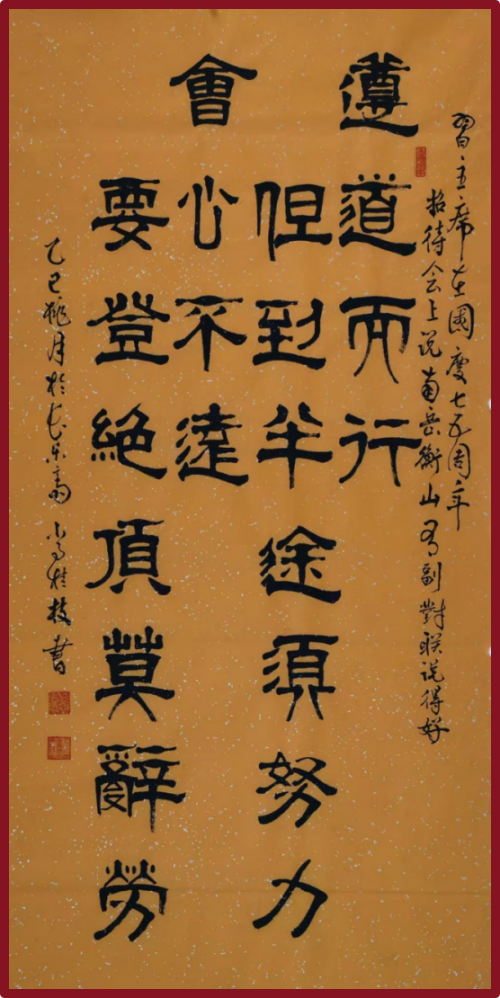 習主席在國慶七五周年
招待会上说南岳衡山有副對联说得好
遵道而行
但到半途須努力
會心不遠
要登絶頂莫辭勞
乙巳桃月於长乐斋 桂枝書